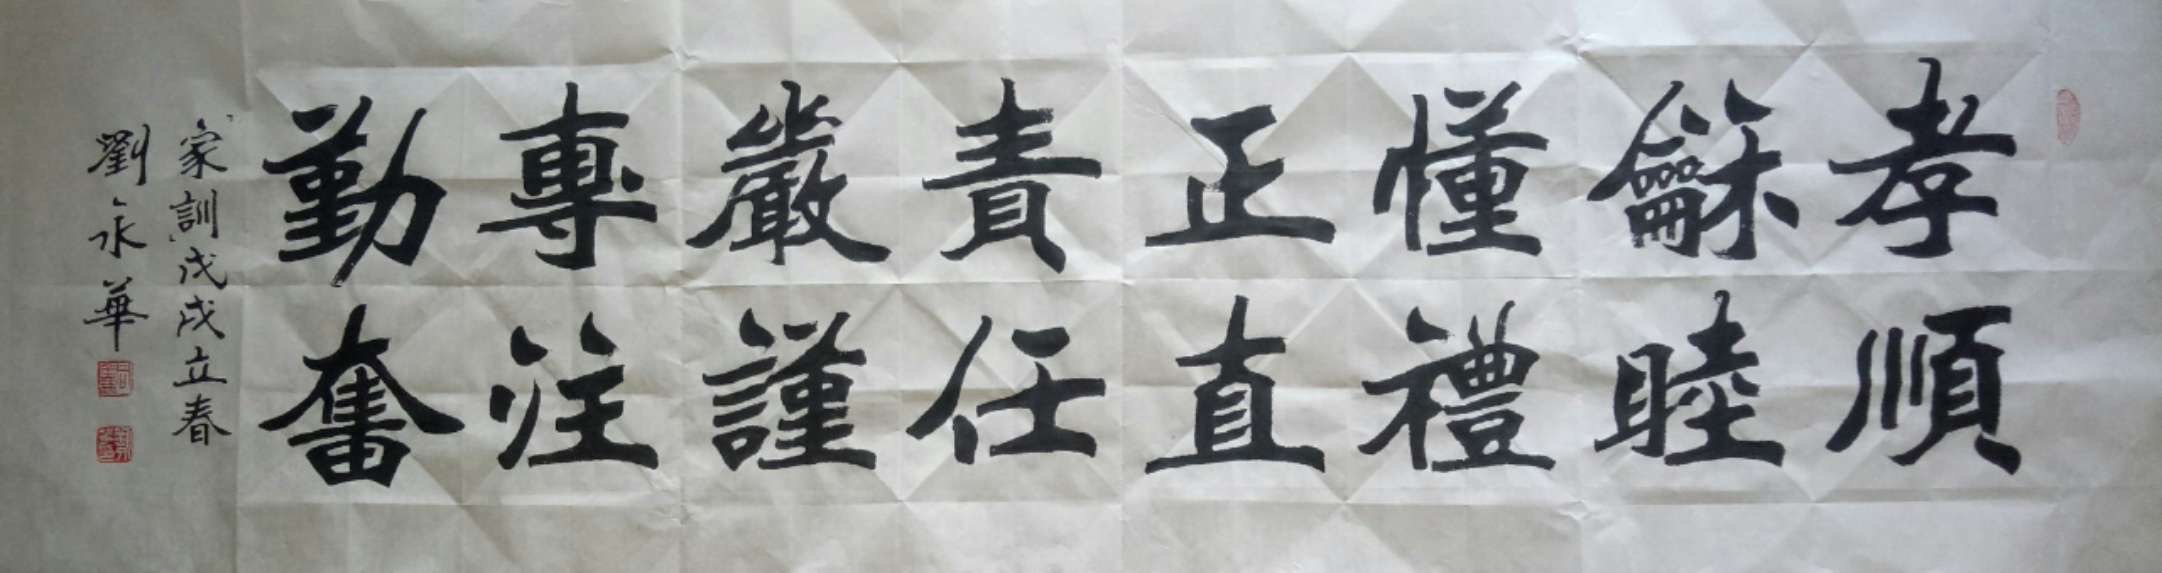 孝順
龢睦
懂禮
正直
責任
嚴謹
專注
勤奮
家訓戊戌立春
劉永華